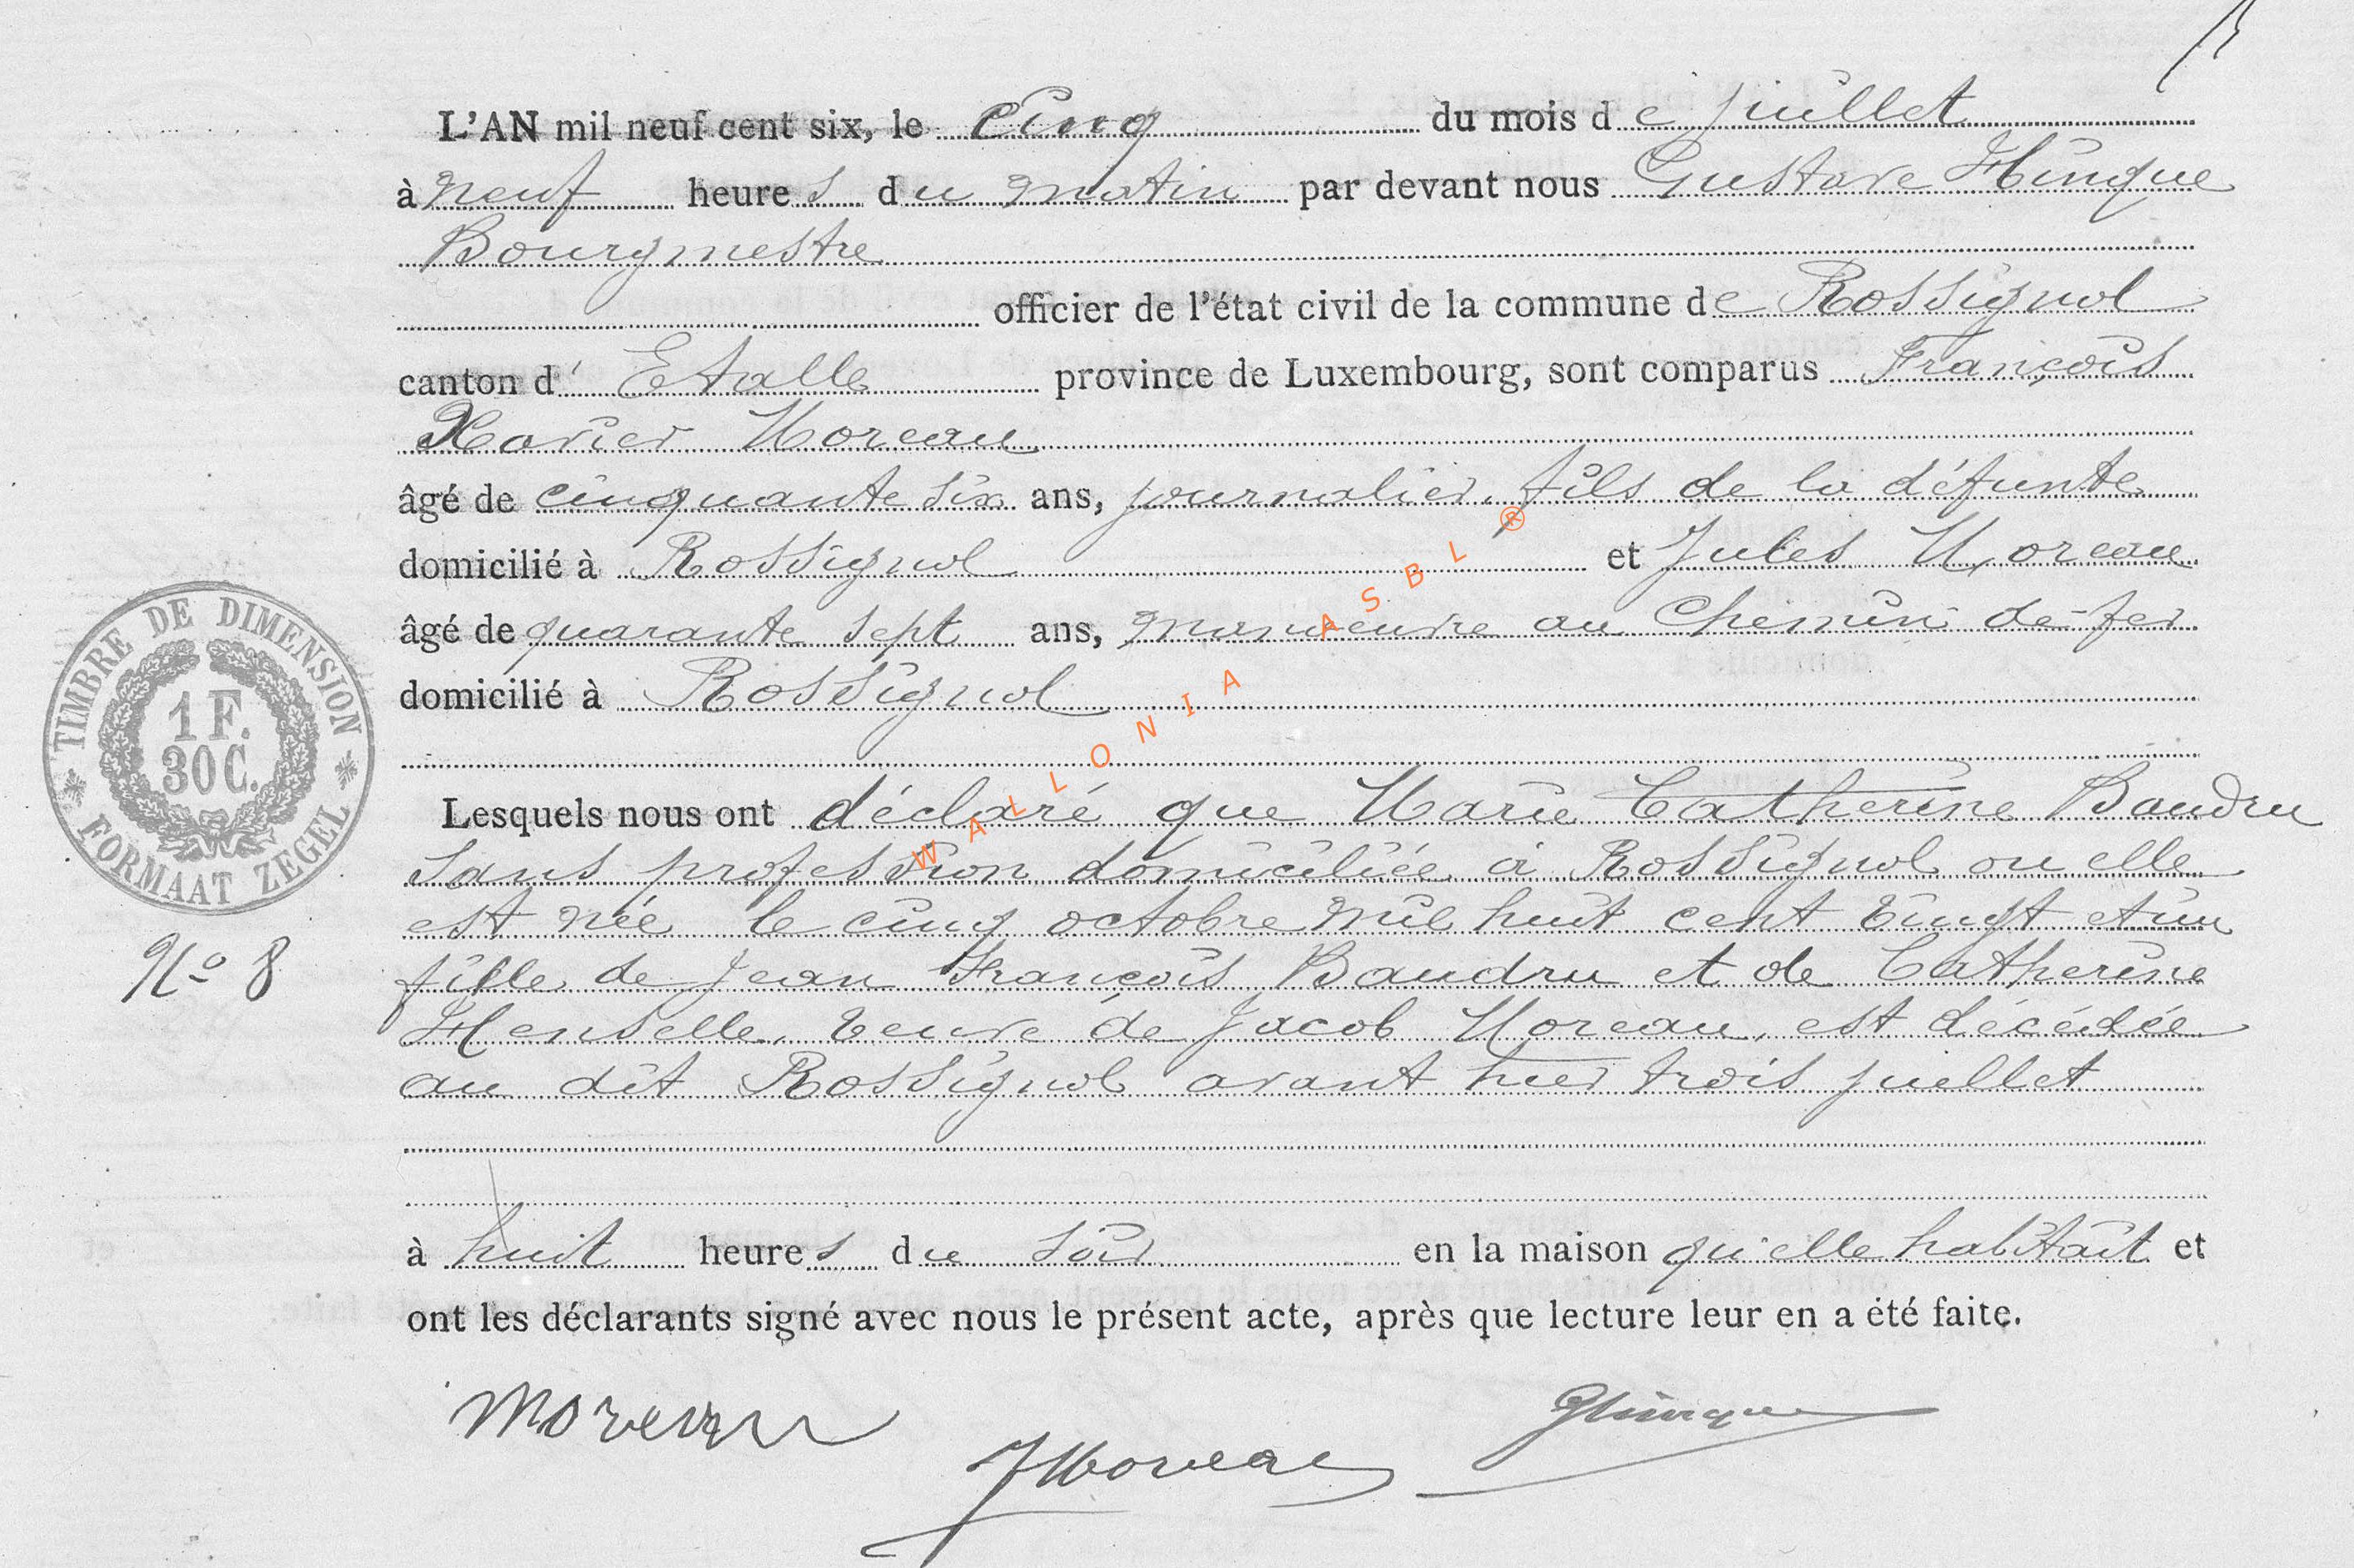 L'AN mil neuf cent six, le Cinq du mois de juillet
à neuf heures du matin par devant nous Gustave Hinque
Bourgmestre
officier de l'état civil de la commune de Rossignol
canton d'Etalle province de Luxembourg, sont comparus François
Xavier Moreau
âgé de cinquante six ans, journalier, fils de la défunte
domicilié à Rossignol et Jules Moreau
âgé de quarante sept ans, manœuvre au Chemin de fer
domicilié à Rossignol
WALLONIA ASBL ®
TIMBRE DE DIMENSION
1 F.
30 C.
FORMAAT ZEGEL
Lesquels nous ont déclaré que Marie Catherine Baudru
sans profession domiciliée à Rossignol ou elle
est née le cinq octobre mil huit cent vingt et un
N° 8
fille de Jean François Baudru et de Catherine
Henselle, veuve de Jacob Moreau, est décédée
au dit Rossignol avant hier trois juillet
à huit heures du soir en la maison qu'elle habitait et
ont les déclarants signé avec nous le présent acte, après que lecture leur en a été faite.
Moreau
JMoreau
GHinque